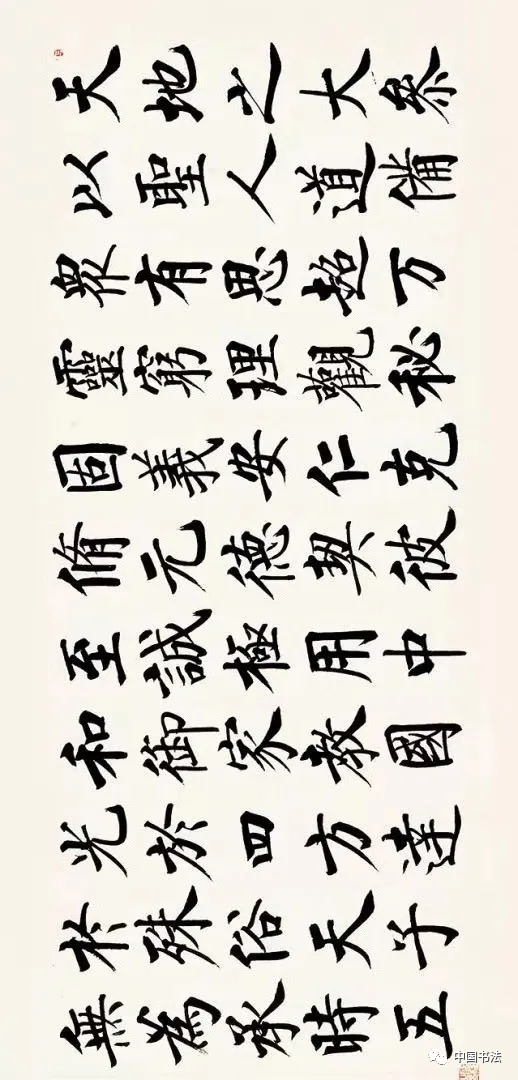 天地之大叅
以聖人道備
眾有思超万
靈窮理觀秘
固義安仁克
脩元德契彼
至誠極用中
和御家教國
光於四方達
於殊俗天子
無為承時五
中国书法